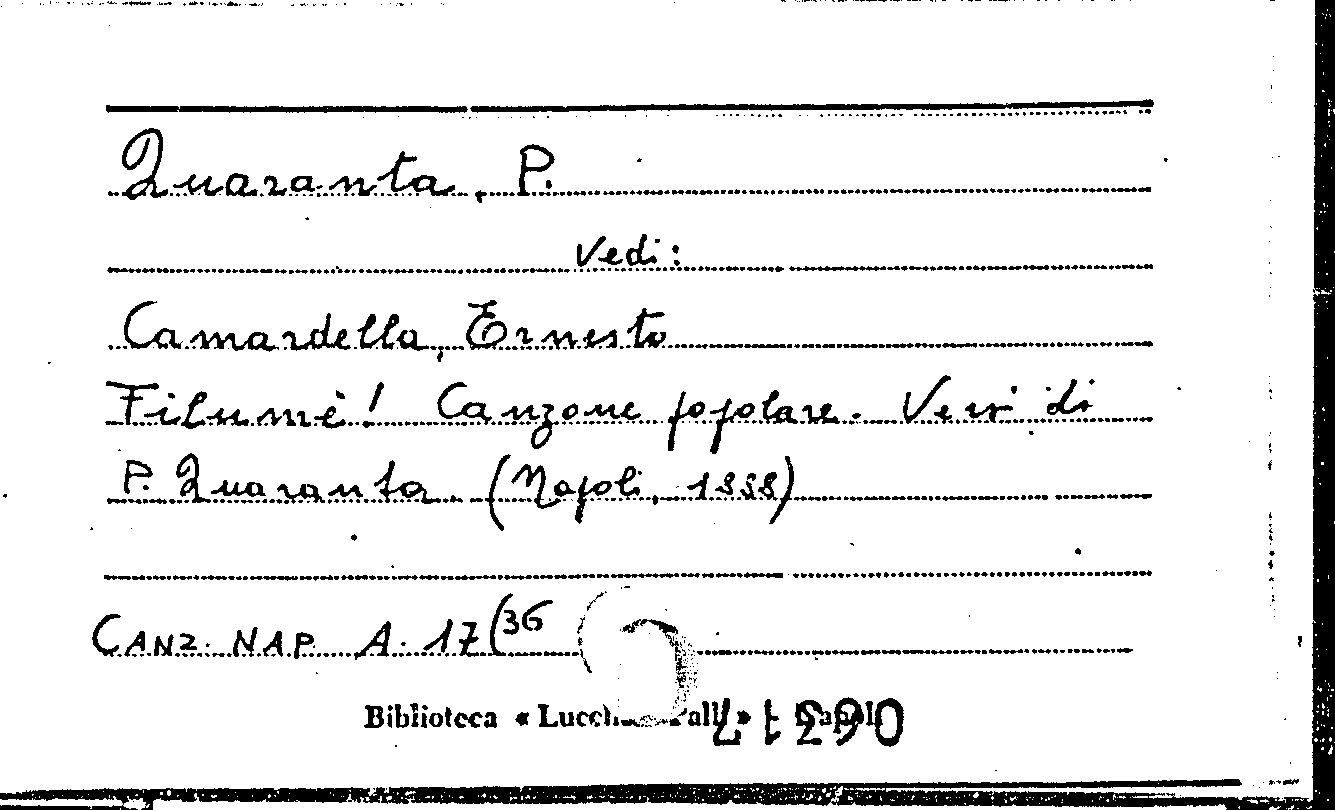 Quaranta, P.
Vedi:
Camardella, Ernesto
Filumè! Canzone popolare. Versi di
P. Quaranta. (Napoli, 1888)
CANZ. NAP. A. 17(36
Biblioteca « Lucchesi Palli » Napoli